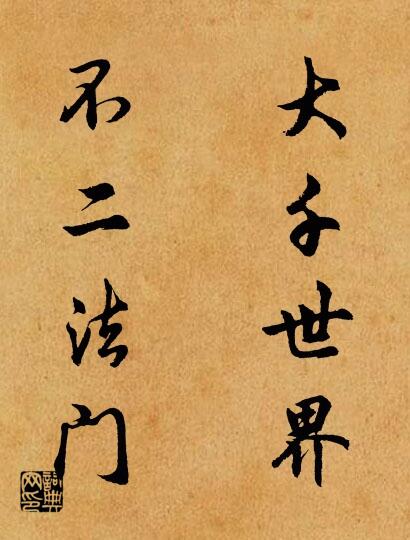 大千世界
不二法门